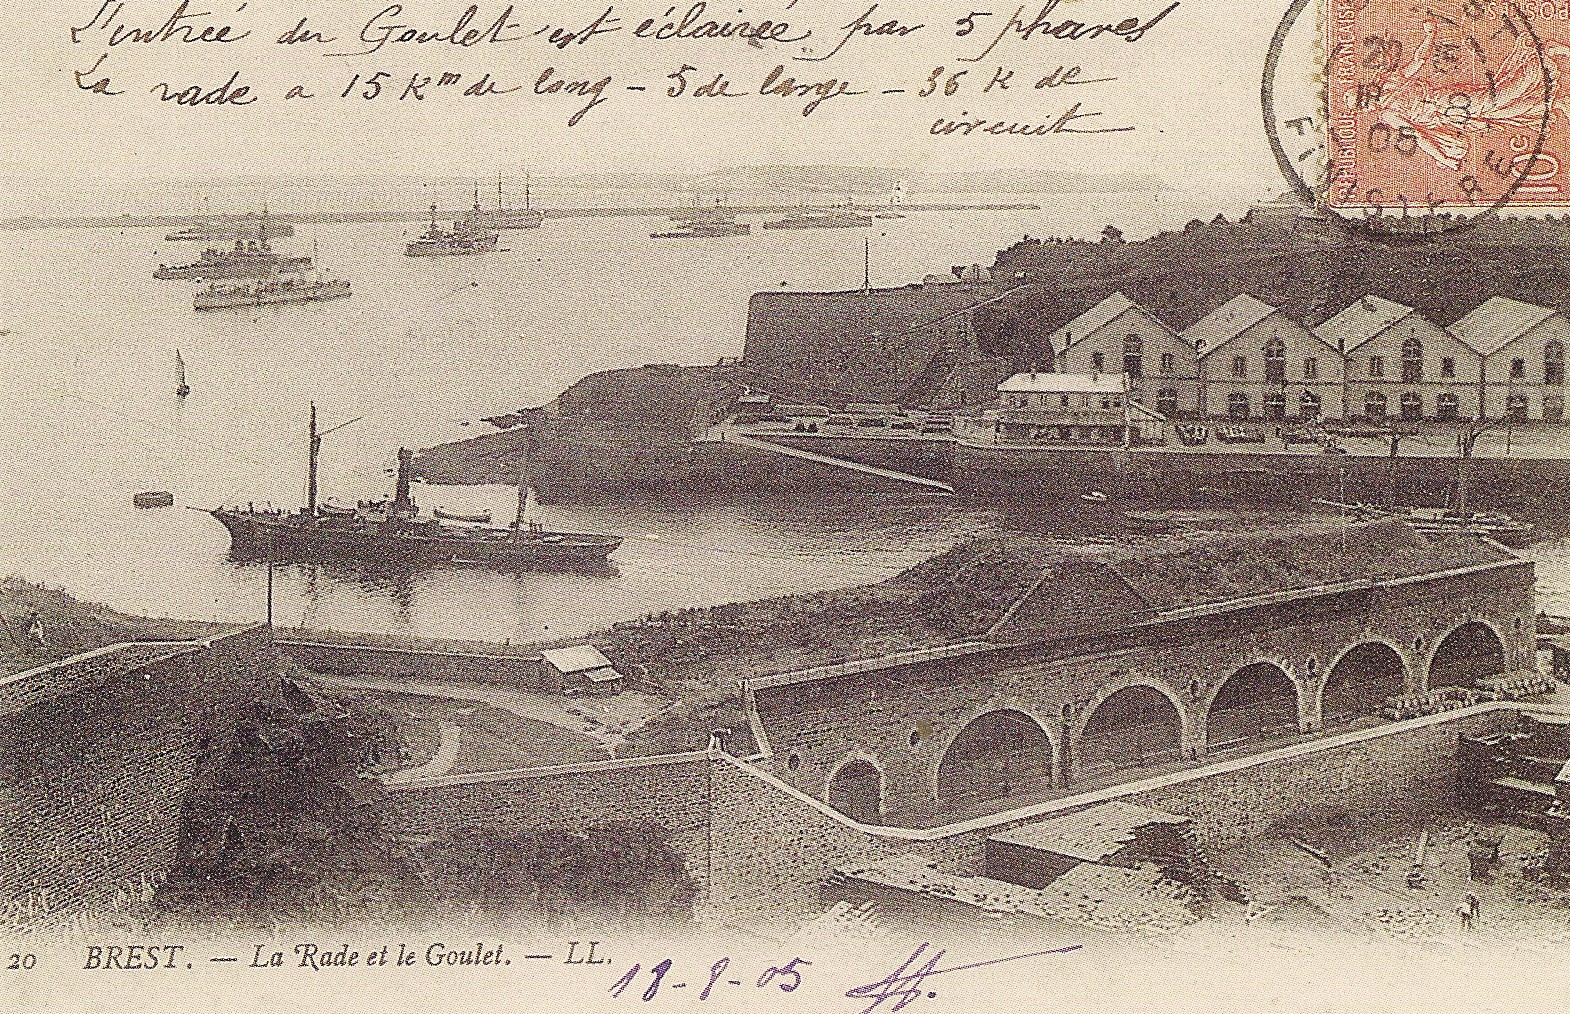 L'entrée du Goulet est éclairée par 5 phares
La rade a 15 Km de long – 5 de large – 36 K de
circuit
RÉPUBLIQUE FRANÇAISE
POSTES
10c
BREST
20
8
05
FINISTERE
20 BREST. — La Rade et le Goulet. — LL.
18-8-05